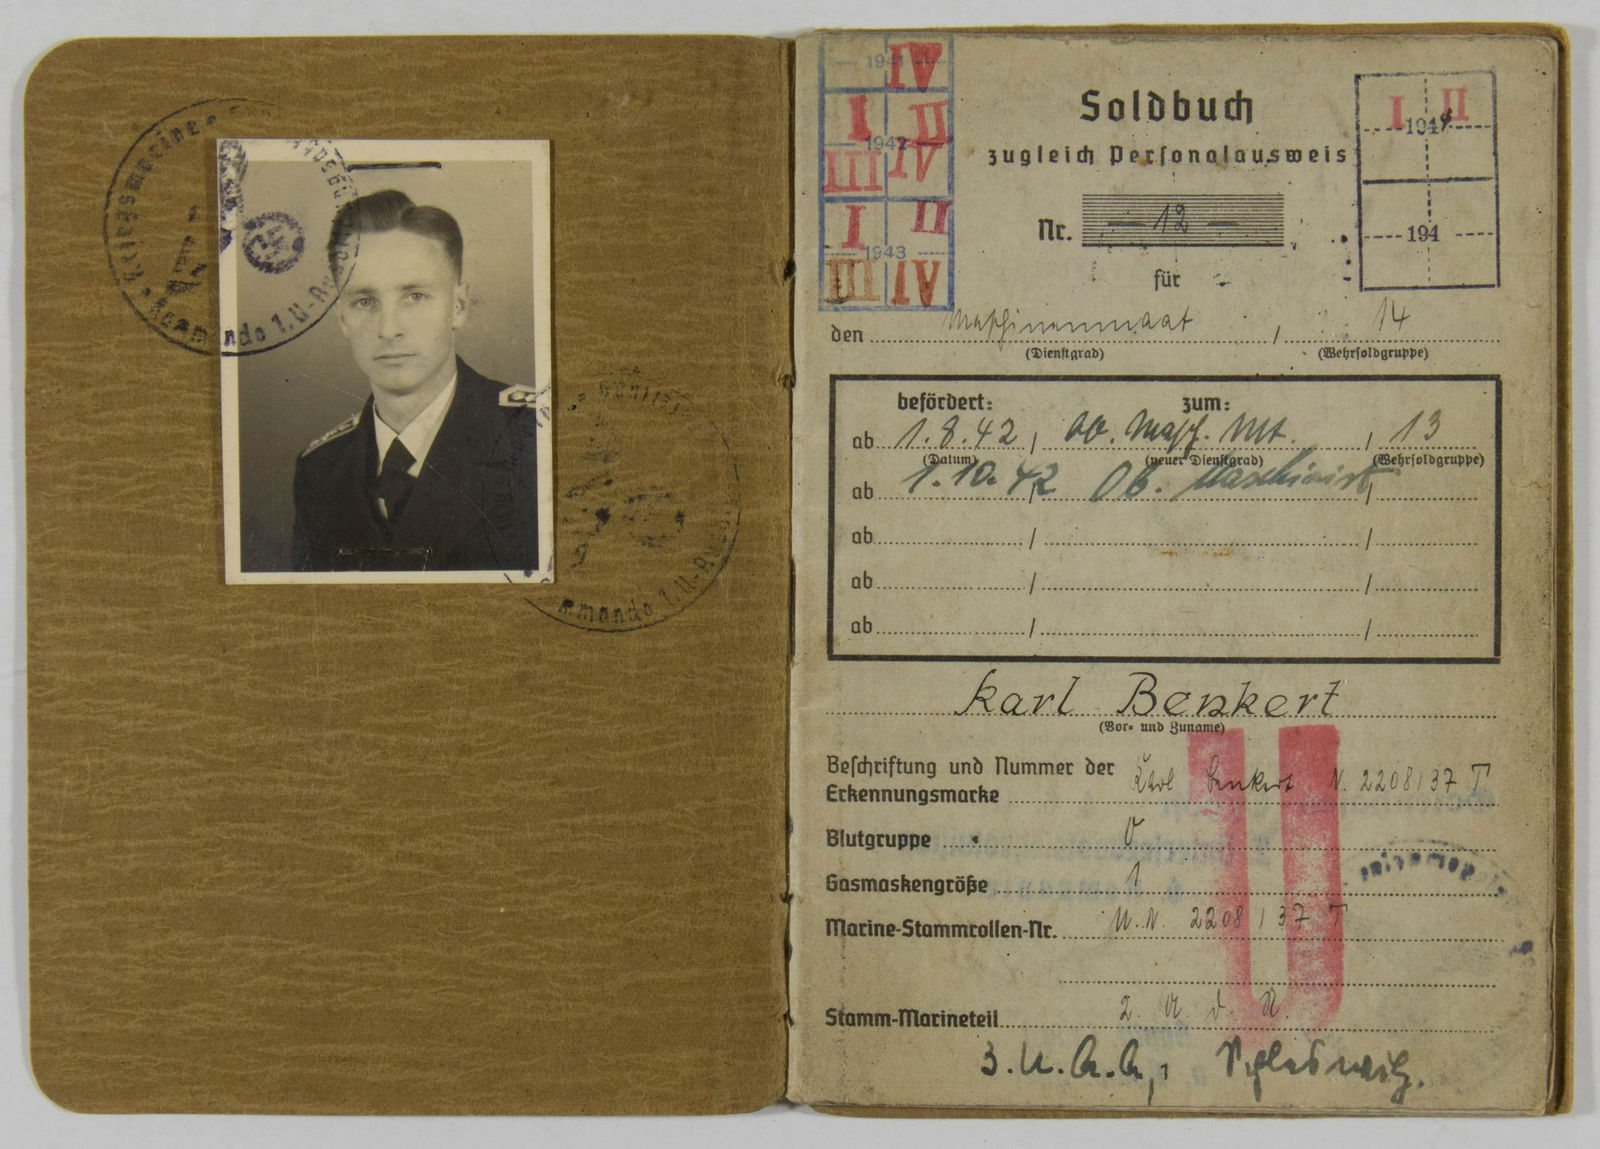 Kriegsmarine
Kommando 1. U-
mmando 1. U-
1941 IV
I II
1942
III IV
I II
1943
III IV
Soldbuch
zugleich Personalausweis
Nr. 12
für
I II
1944
194
den Maschinenmaat / 14
(Dienstgrad) (Wehrsoldgruppe)
befördert: zum:
ab 1.8.42 / Ob. Masch. Mt. / 13
(Datum) (neuer Dienstgrad) (Wehrsoldgruppe)
ab 1.10.42 Ob. Maschinist /
ab / /
ab / /
ab / /
Karl Benkert
(Vor- und Zuname)
Beschriftung und Nummer der
Erkennungsmarke Karl Benkert N. 2208/37 T
Blutgruppe 0
Gasmaskengröße 1
Marine-Stammrollen-Nr. U.N. 2208/37 T
U
Stamm-Marineteil 2.
3. U.A.A., Schleswig.